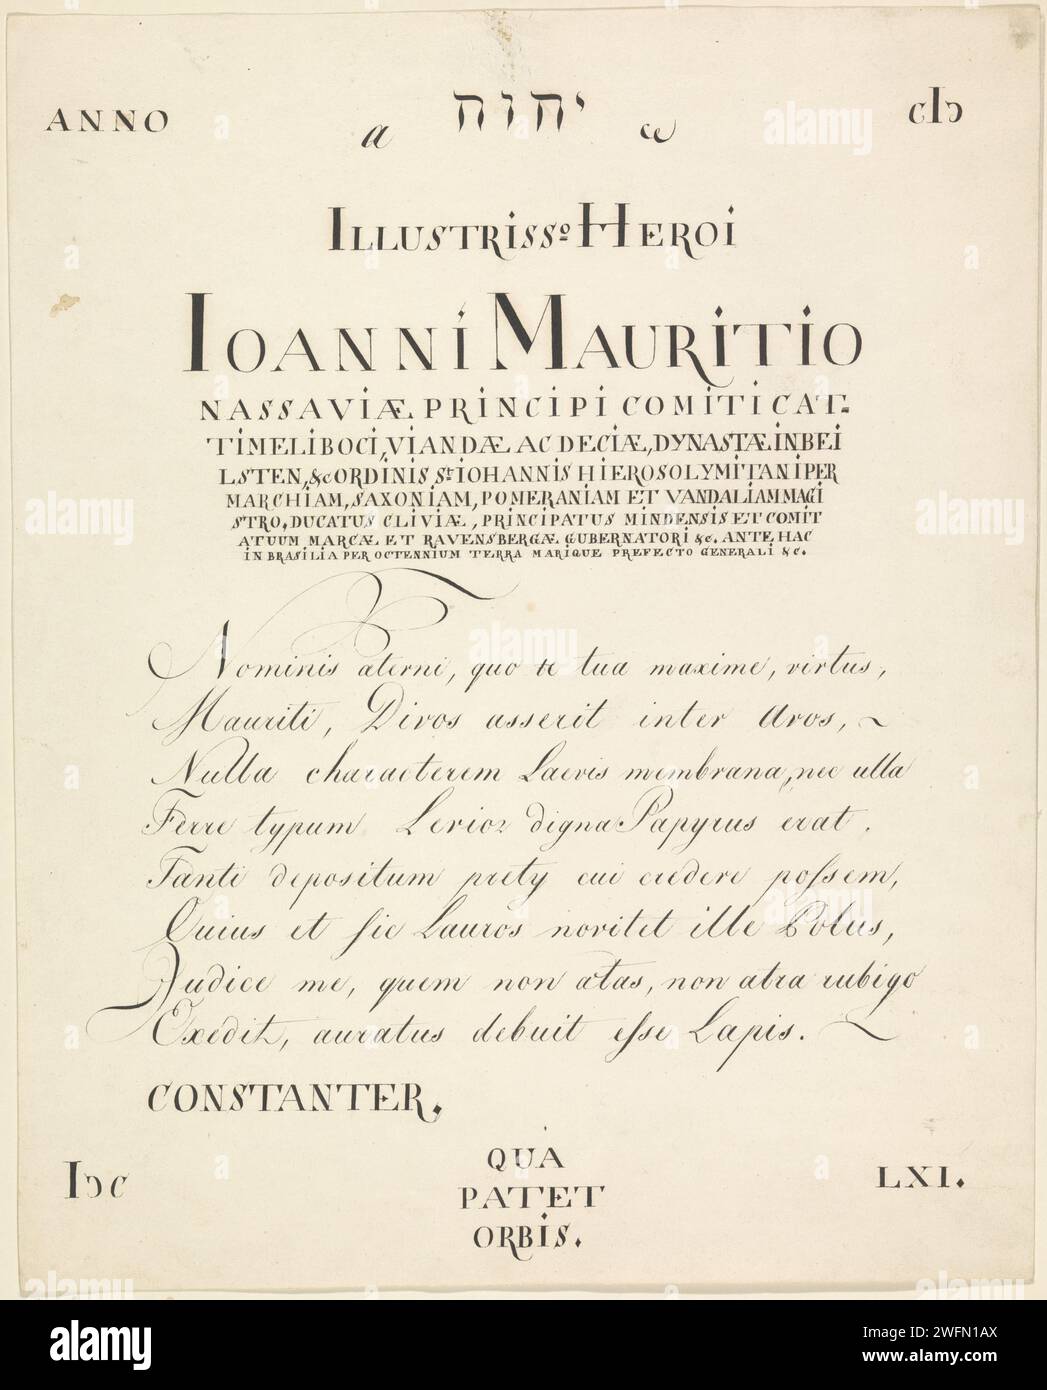 ANNO a יהוה ω cIɔ
ILLUSTRISSº HEROI
IOANNI MAURITIO
NASSAVIÆ PRINCIPI COMITI CAT=
TIMELIBOCI, VIANDÆ AC DECIÆ, DYNASTÆ IN BEI
LSTEN, &c ORDINIS Sti IOHANNIS HIEROSOLYMITANI PER
MARCHIAM, SAXONIAM, POMERANIAM ET VANDALIAM MAGI
STRO, DUCATUS CLIVIÆ, PRINCIPATUS MINDENSIS ET COMIT
ATUUM MARCÆ ET RAVENSBERGÆ GUBERNATORI &c. ANTE HAC
IN BRASILIA PER OCTENNIUM TERRA MARIQUE PREFECTO GENERALI &c.
Nominis æterni, quo te tua maxime, virtus,
Mauriti, Divos asserit inter Avos,
Nulla characterem Laevis membrana, nec ulla
Ferre typum Levior digna Papyrus erat.
Tanti depositum prety cui credere possem,
Quius et sic Lauros novitet ille Polus,
Judice me, quem non ætas, non atra rubigo
Exedit, auratus debuit esse Lapis.
CONSTANTER.
QUA
PATET
ORBIS.
Iɔc LXI.
alamy
Image ID: 2WFN1AX
www.alamy.com